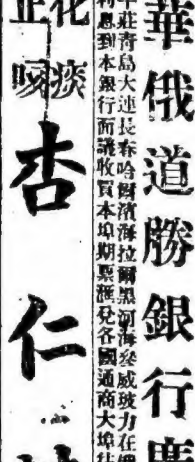 華俄道勝銀行廣
莊青島大連長春哈爾濱海拉爾黑河海參威玻力在
息到本銀行面議收買本埠期票滙兌各國通商大埠
化痰
止咳
杏仁